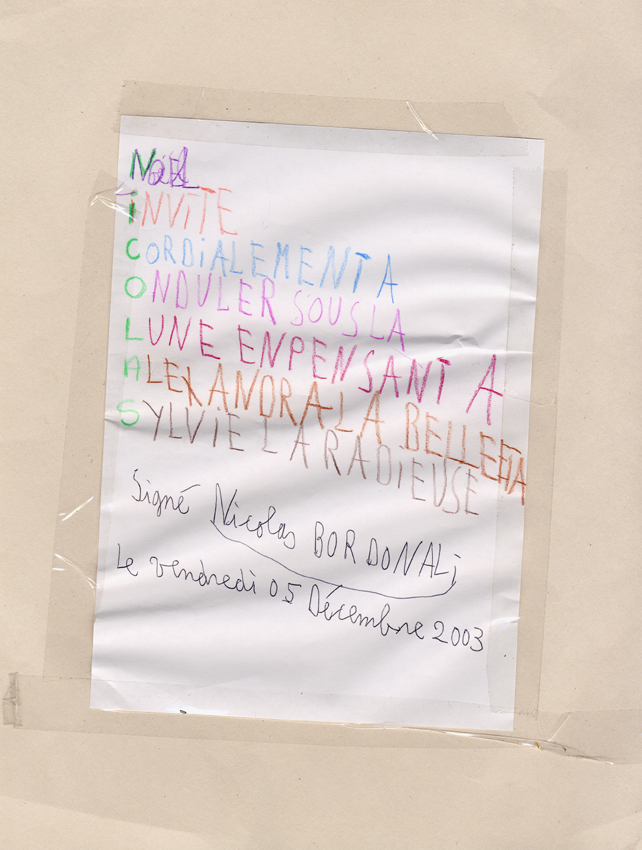 NOËL
iNViTE
CORDiALEMENT A
ONDULER SOUS LA
LUNE EN PENSANT A
ALEXANDRA LA BELLE ET A
SYLViE LA RADiEUSE
Signé Nicolas BORDONALi
Le vendredi 05 Décembre 2003